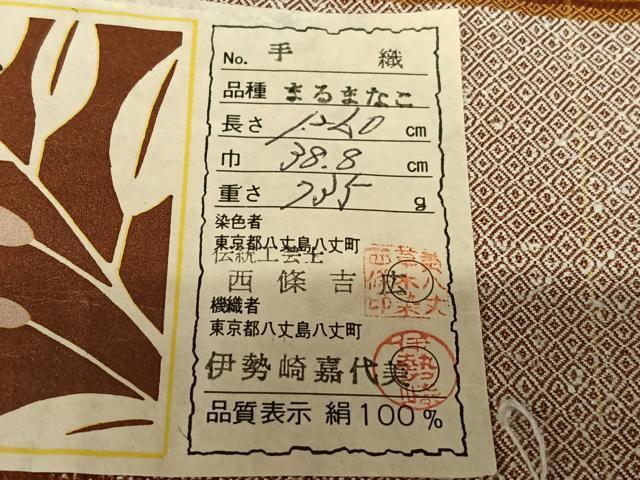 No. 手織
品種 まるまなこ
長さ 1260 cm
巾 38.8 cm
重さ 735 g
染色者
東京都八丈島八丈町
伝統工芸士
西條吉広
機織者
東京都八丈島八丈町
伊勢崎嘉代美
品質表示 絹100%
黄八丈
草木染
西條印
伊勢崎